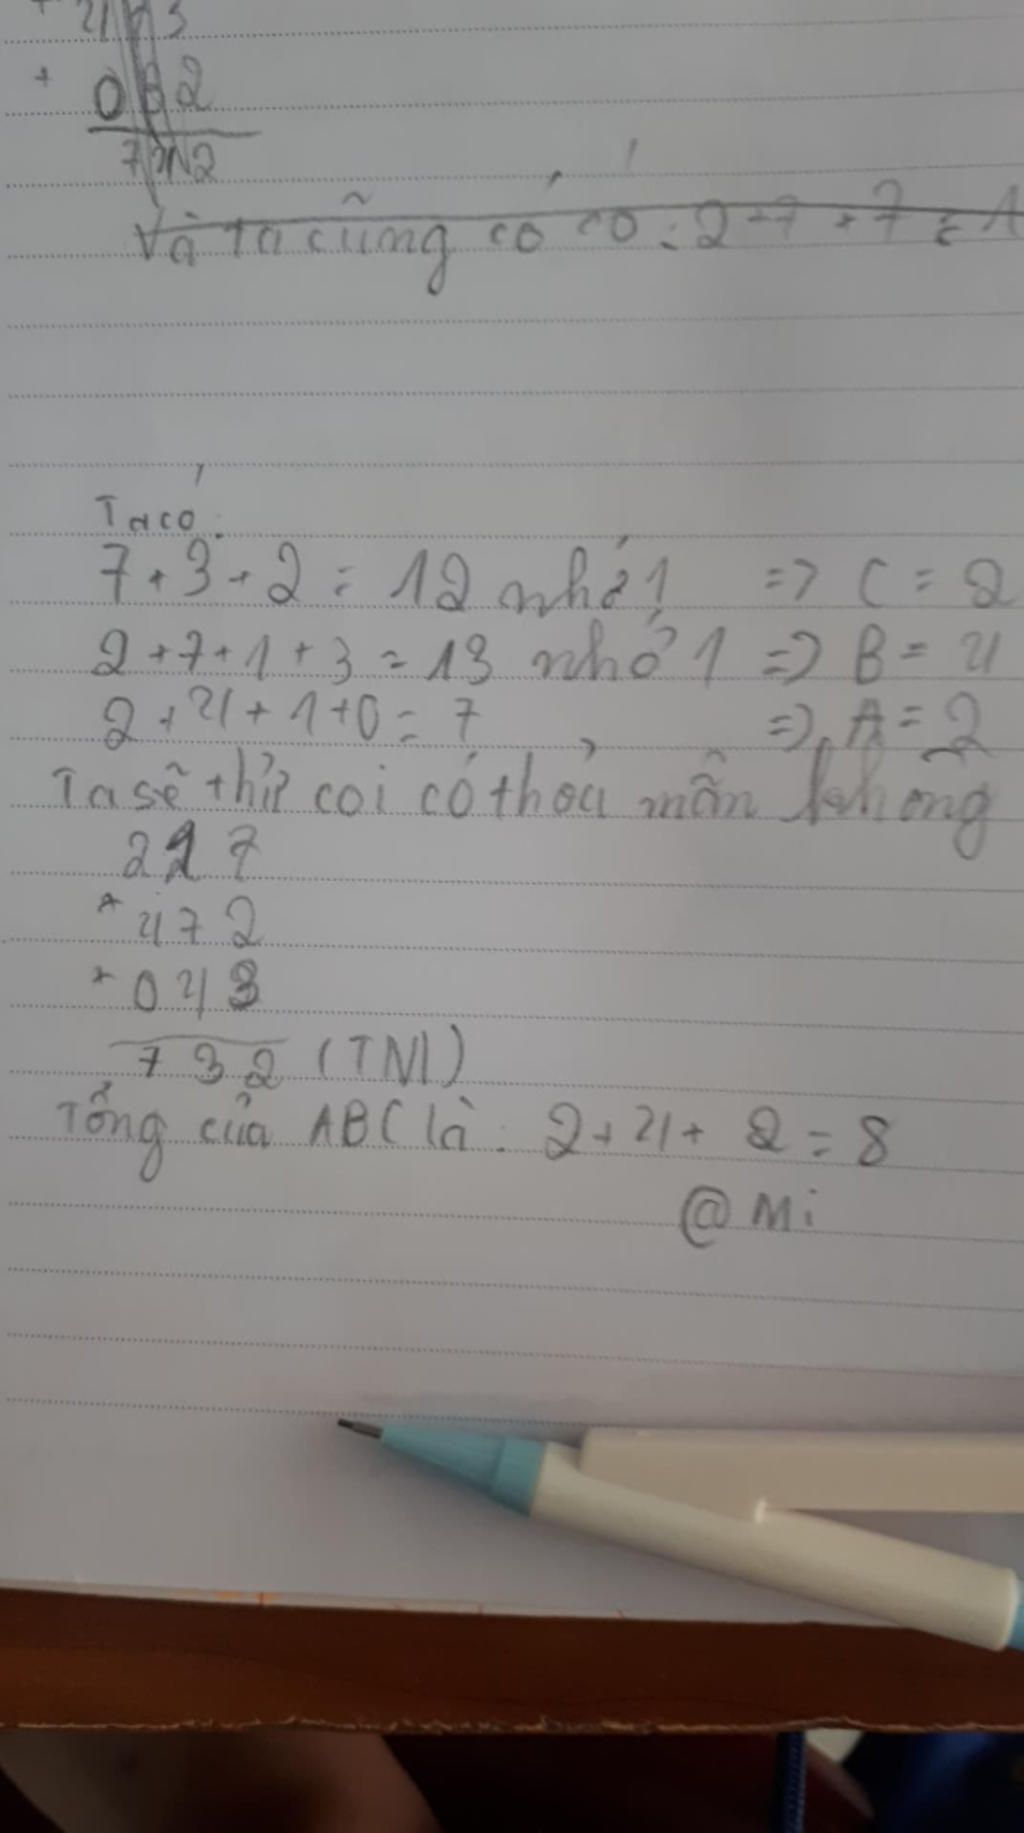 + 4 7 3
+ 0 B 2
7 3 2
Và ta cũng có có : 2 + 7 + 7 = 1
Ta có :
7 + 3 + 2 = 12 nhớ 1 => C = 2
2 + 7 + 1 + 3 = 13 nhớ 1 => B = 4
2 + 4 + 1 + 0 = 7 => A = 2
Ta sẽ thử coi có thỏa mãn không
2 2 7
+ 4 7 2
+ 0 4 3
7 3 2 (TM)
Tổng của ABC là : 2 + 4 + 2 = 8
@ Mi